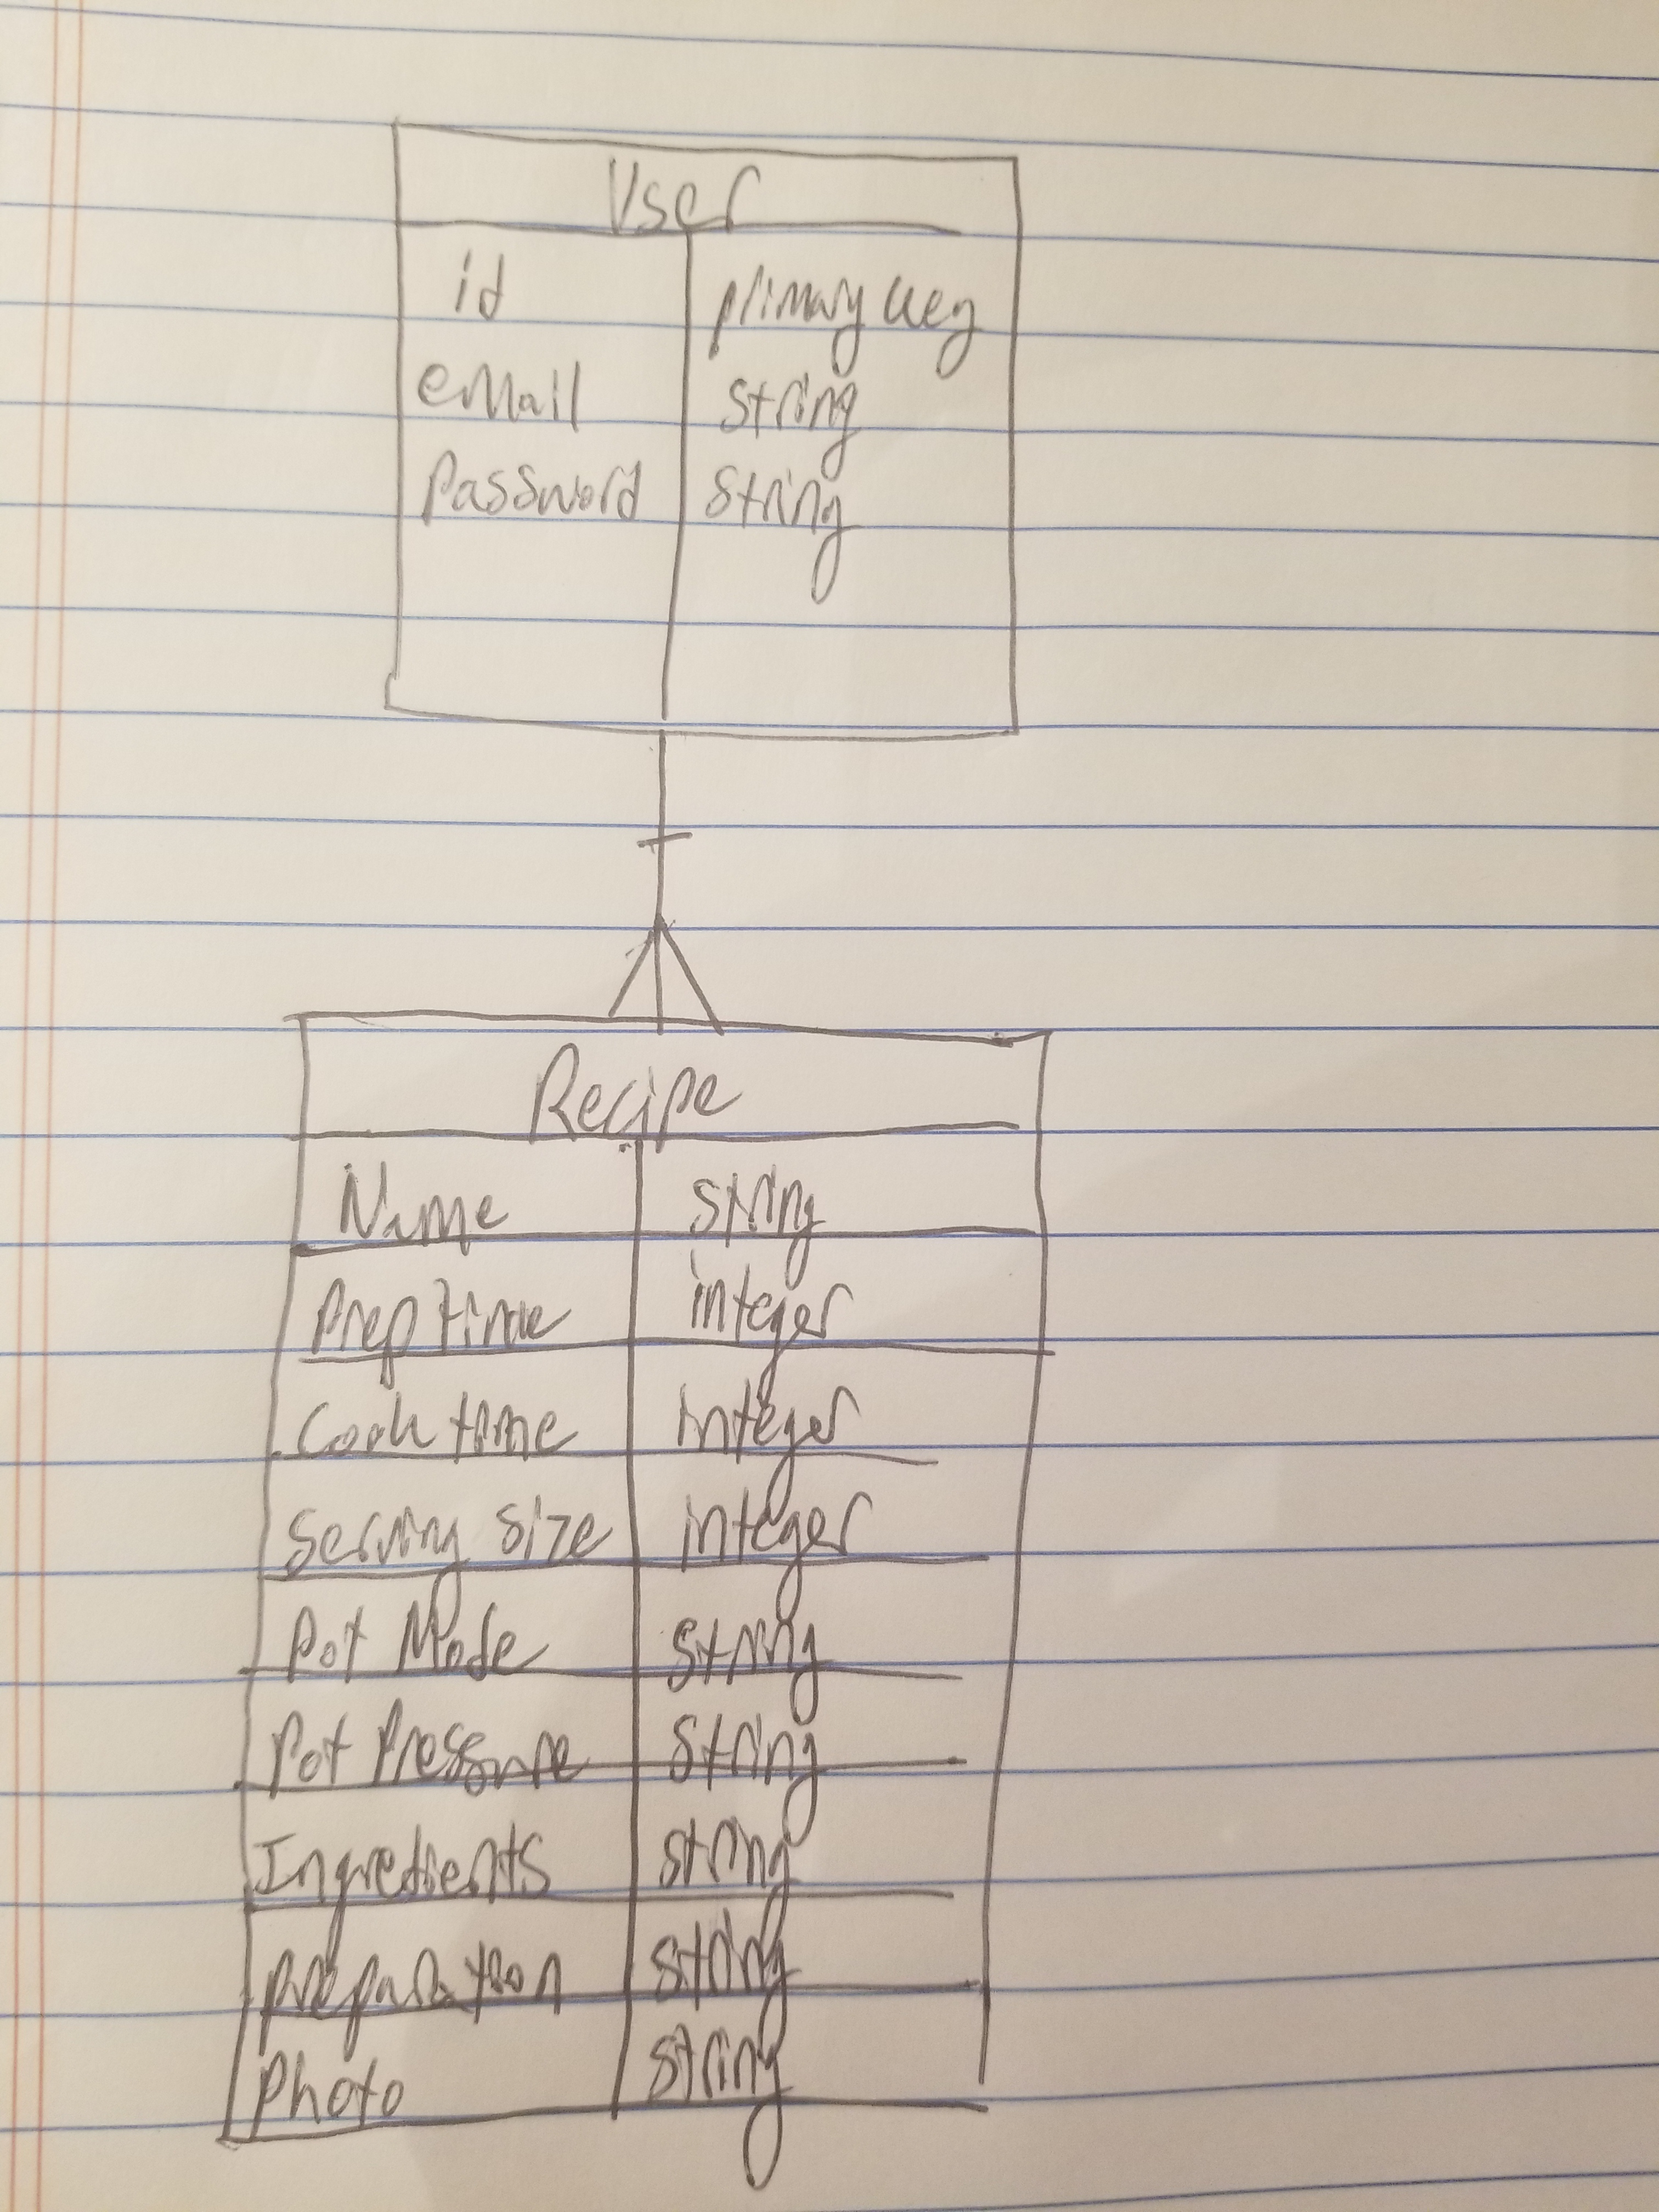 User
id primary key
email string
Password string
Recipe
Name string
Prep time integer
Cook time integer
Serving size integer
Pot Mode string
Pot Pressure string
Ingredients string
preparation string
Photo string